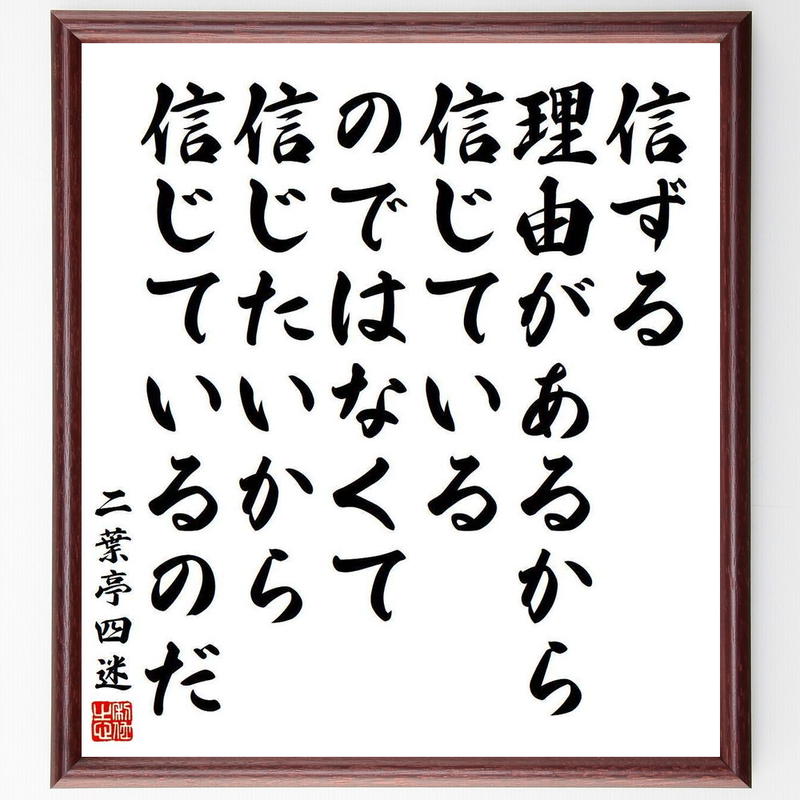 信ずる
理由があるから
信じている
のではなくて
信じたいから
信じているのだ
二葉亭四迷